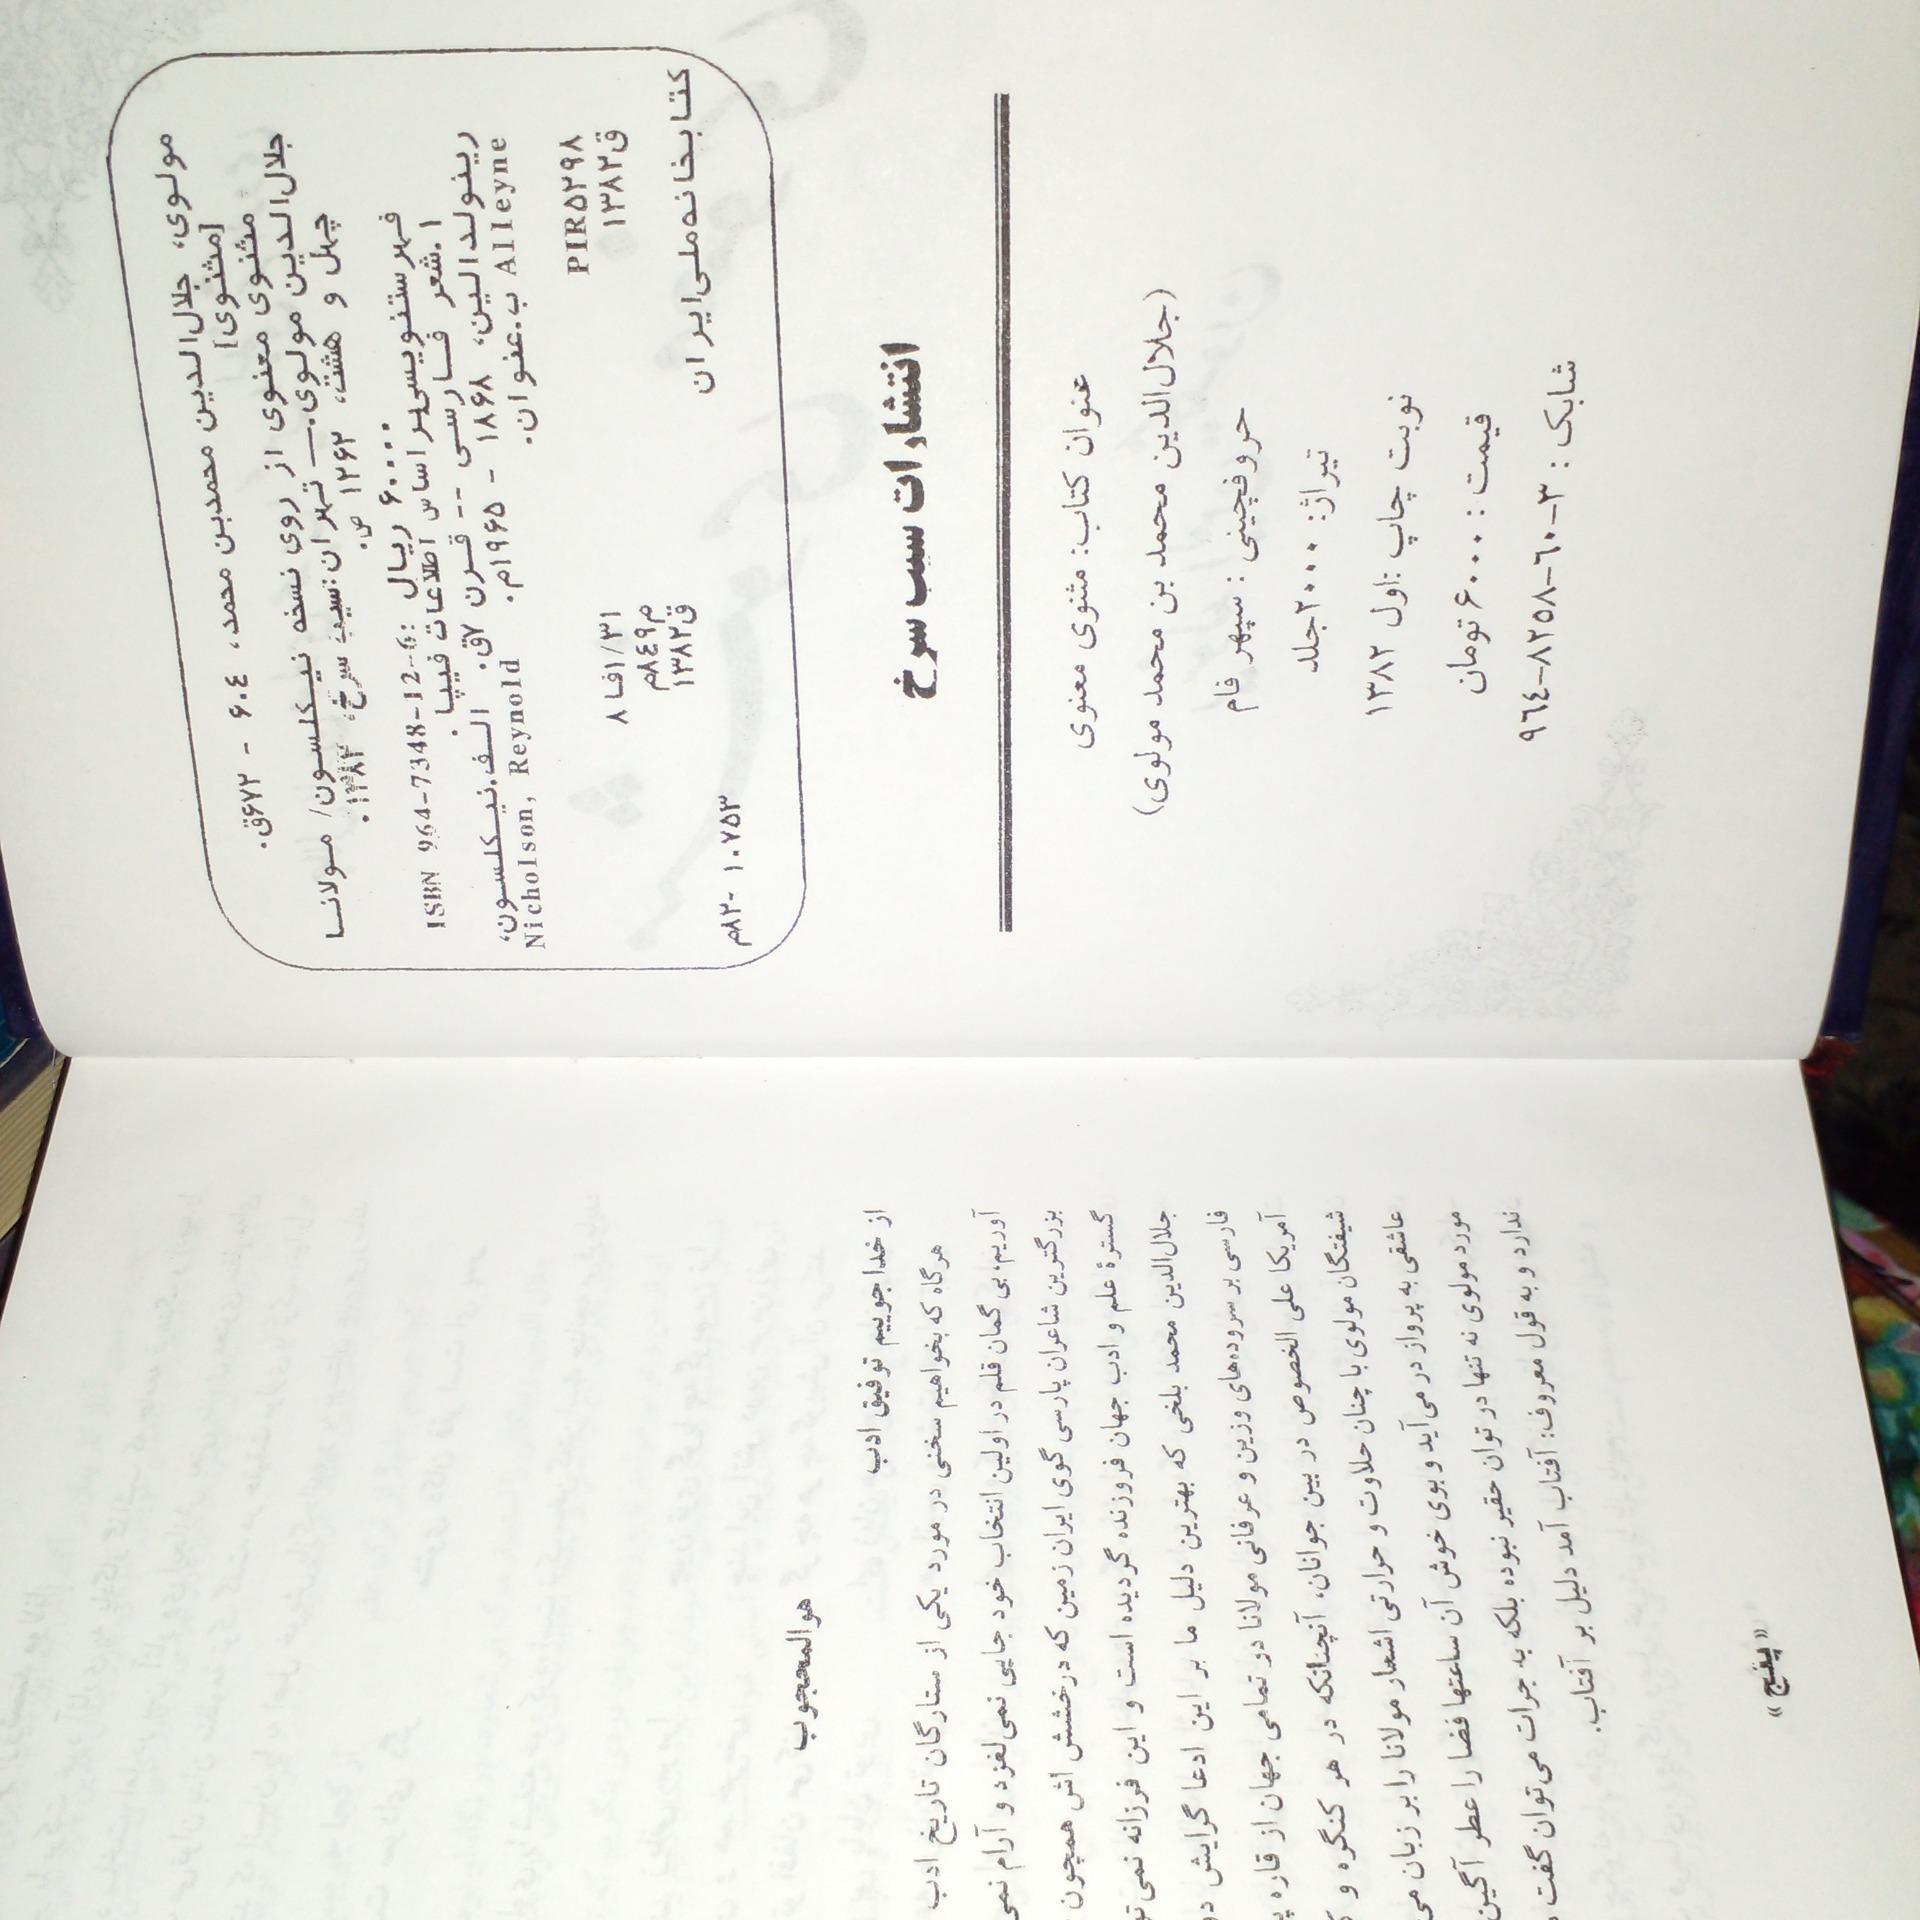 مولوی، جلال‌الدین محمدبن محمد، ۶۰۴ - ۶۷۲ق.
[مثنوی]
مثنوی معنوی از روی نسخه نیکلسون/ مولانا
جلال‌الدین مولوی.— تهران: سیب سرخ، ۱۳۸۲.
چهل و هشت، ۱۲۶۲ ص.
ISBN 964-7348-12-6: ۶۰۰۰۰ ریال
فهرستنویسی بر اساس اطلاعات فیپا.
۱.شعر فارسی -- قرن ۷ق. الف.نیکلسون،
رینولد الین، ۱۸۶۸ - ۱۹۶۵م.
Nicholson, Reynold Alleyne ب.عنوان.
PIR۵۲۹۸ ۸فا۱/۳۱
ق۱۳۸۲ م۸۴۹
ق۱۳۸۲
کتابخانه ملی ایران ۱۰۷۵۳ -۸۲م
انتشارات سیب سرخ
عنوان کتاب: مثنوی معنوی
(جلال‌الدین محمد بن محمد مولوی)
حروفچینی : سپهر فام
تیراژ: ۲۰۰۰جلد
نوبت چاپ :اول ۱۳۸۲
قیمت : ۶۰۰۰تومان
شابک : ۳-۶۰-۸۲۵۸-۹۶۴
هوالمحبوب
از خدا جوییم توفیق ادب
هرگاه که بخواهیم سخنی در مورد یکی از ستارگان تاریخ ادب
آوریم، بی گمان قلم در اولین انتخاب خود جایی نمی‌لغزد و آرام نمی
بزرگترین شاعران پارسی گوی ایران زمین که درخشش اش همچون
گسترهٔ علم و ادب جهان فروزنده گردیده است و این فرزانه نمی‌تو
جلال‌الدین محمد بلخی که بهترین دلیل ما بر این ادعا گرایش دو
فارسی بر سروده‌های وزین و عرفانی مولانا در تمامی جهان از قاره
آمریکا علی الخصوص در بین جوانان، آنچنانکه در هر کنگره و
شیفتگان مولوی با چنان حلاوت و حرارتی اشعار مولانا را بر زبان می
عاشقی به پرواز در می‌آید و بوی خوش آن ساعتها فضا را عطر آگین
مورد مولوی نه تنها در توان حقیر نبوده بلکه به جرات می‌توان گفت
ندارد و به قول معروف: آفتاب آمد دلیل بر آفتاب.
«پنج»